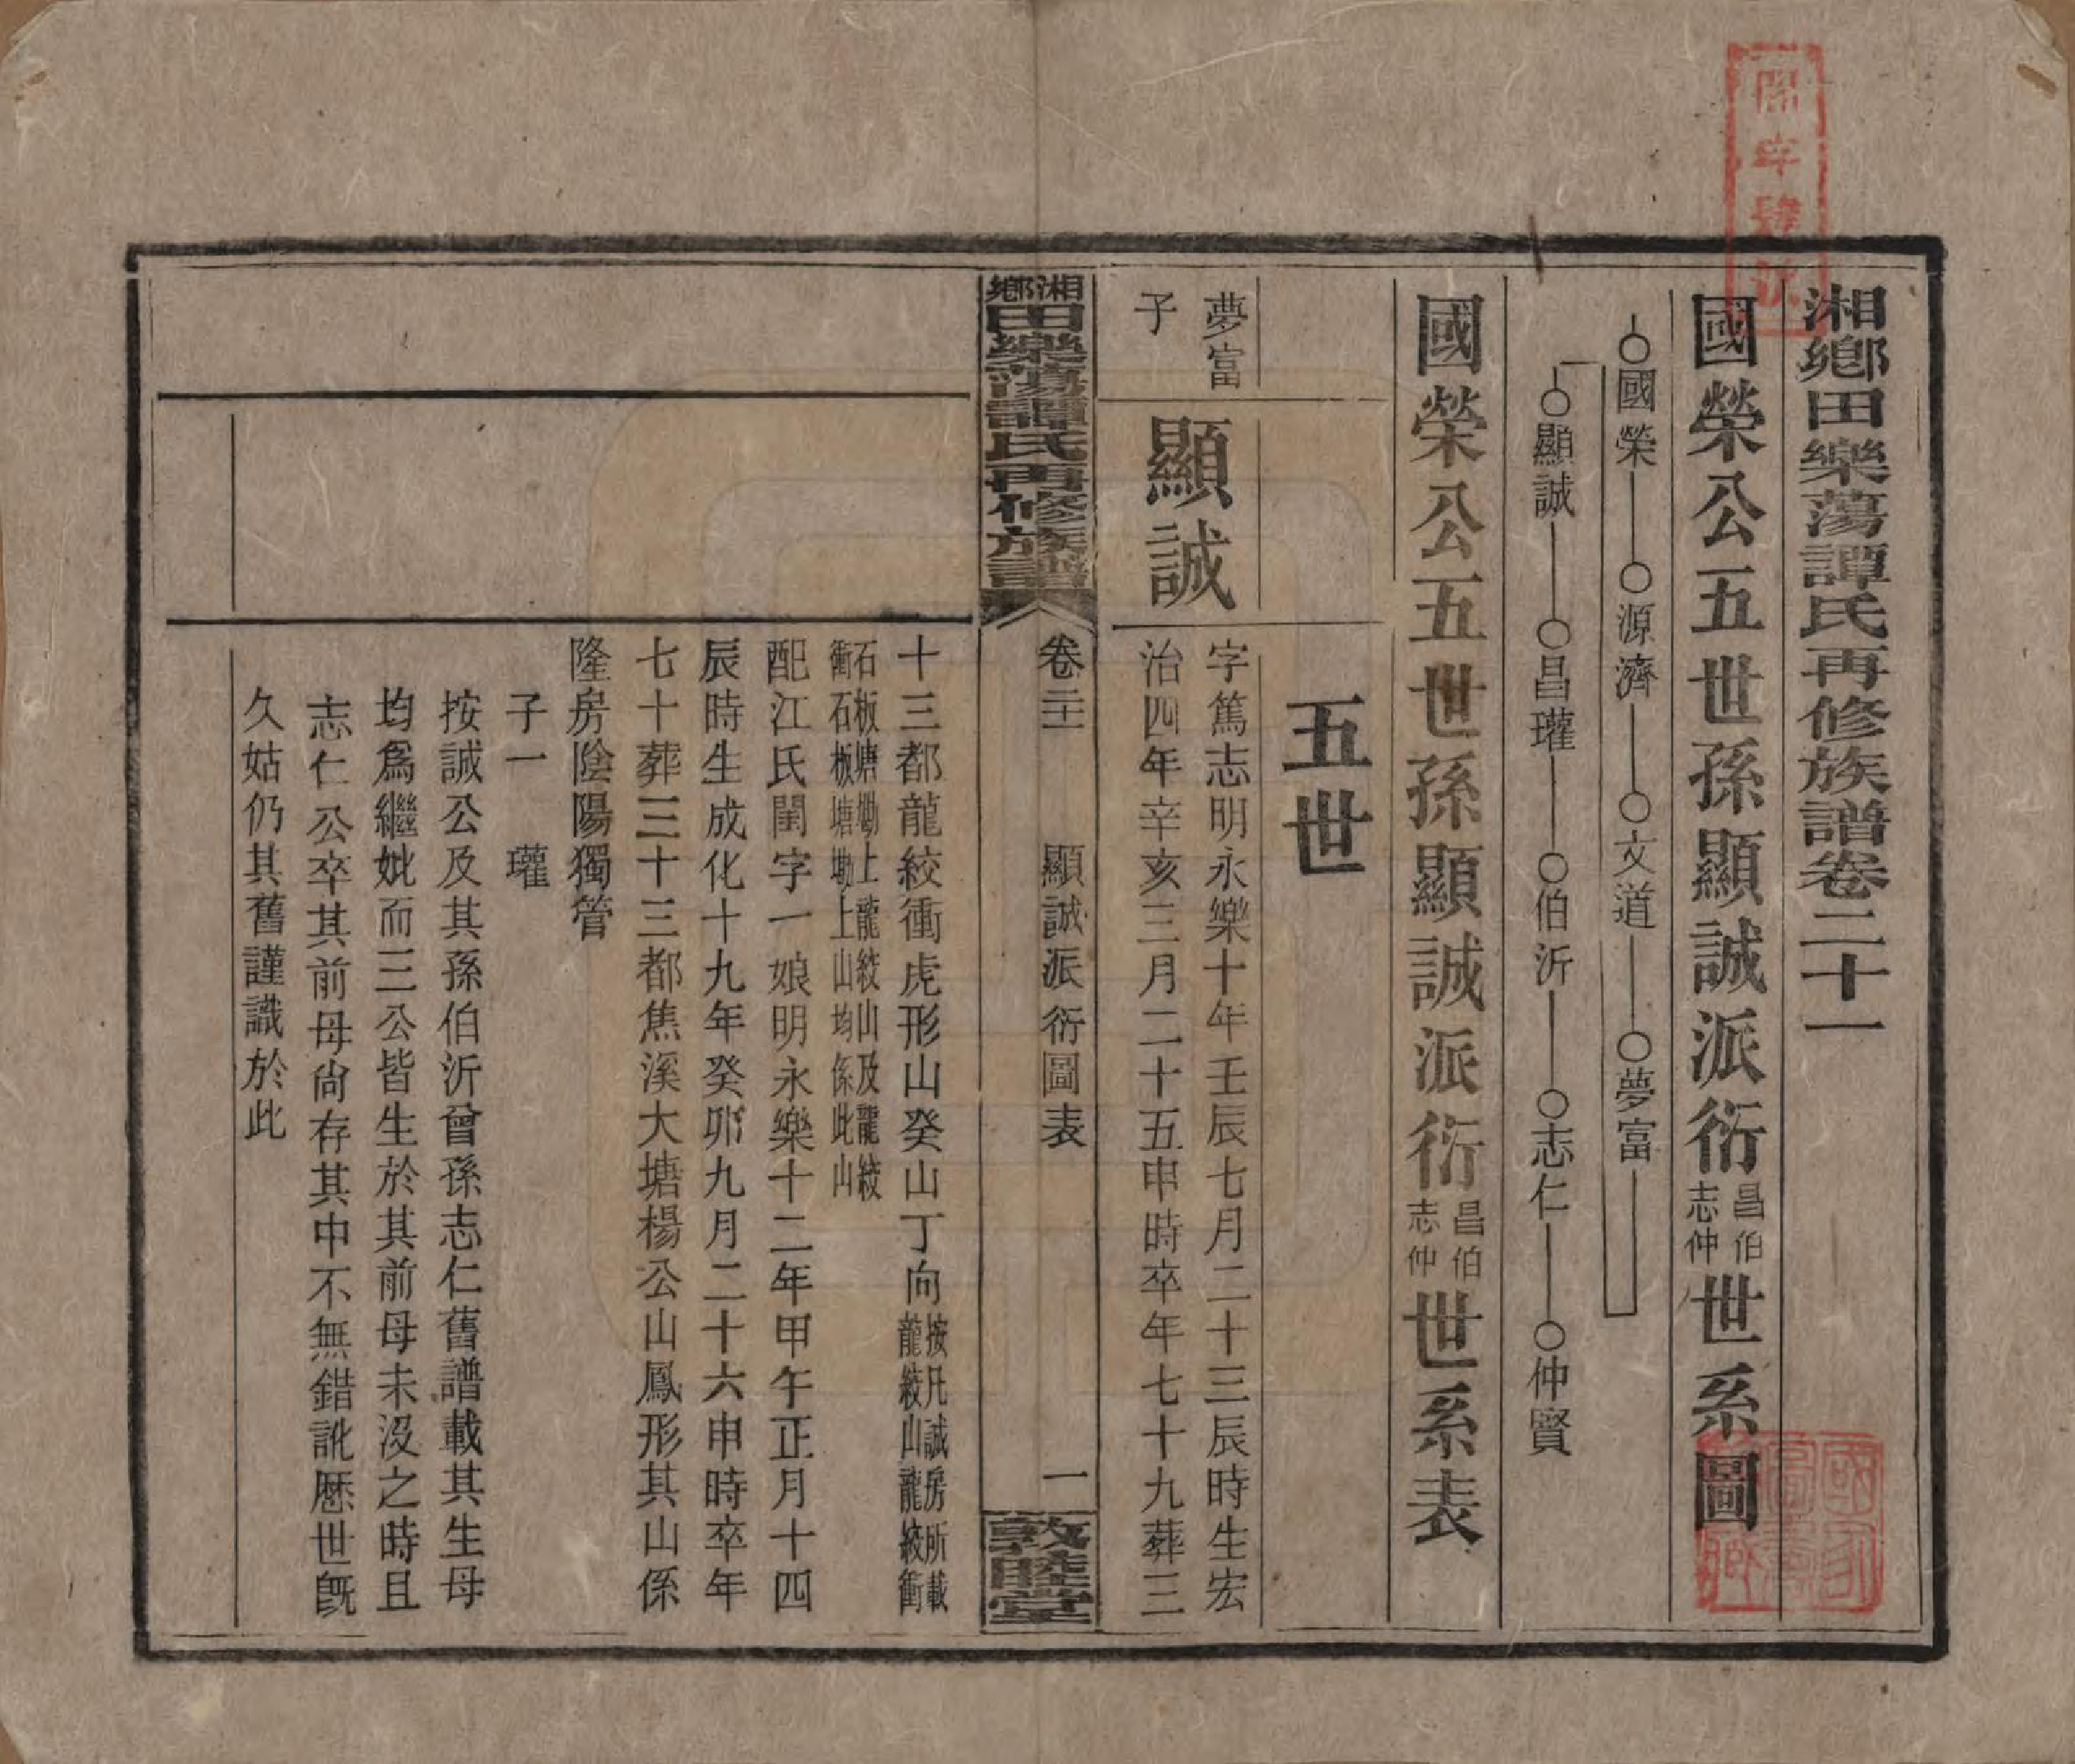 湘鄉田樂蕩譚氏再修族譜卷二十一
國榮公五世孫顯誠派衍昌伯志仲世系圖
○國榮○源濟○文道○夢富
○顯誠○昌瓘○伯沂○志仁○仲賢
國榮公五世孫顯誠派衍昌伯志仲世系表
五世
夢富子
顯誠
字篤志明永樂十年壬辰七月二十三辰時生宏
治四年辛亥三月二十五申時卒年七十九葬三
湘鄉田樂蕩譚氏再修族譜
卷二十一
顯誠派衍圖表
一
敦睦堂
十三都龍絞衝虎形山癸山丁向按凡誠房所載龍絞山龍絞衝
石板塘坳上龍絞山及龍絞衝石板塘坳上山均係此山
配江氏閨字一娘明永樂十二年甲午正月十四
辰時生成化十九年癸卯九月二十六申時卒年
七十葬三十三都焦溪大塘楊公山鳳形其山係
隆房陰陽獨管
子一 瓘
按誠公及其孫伯沂曾孫志仁舊譜載其生母
均爲繼妣而三公皆生於其前母未沒之時且
志仁公卒其前母尙存其中不無錯訛歷世旣
久姑仍其舊謹識於此